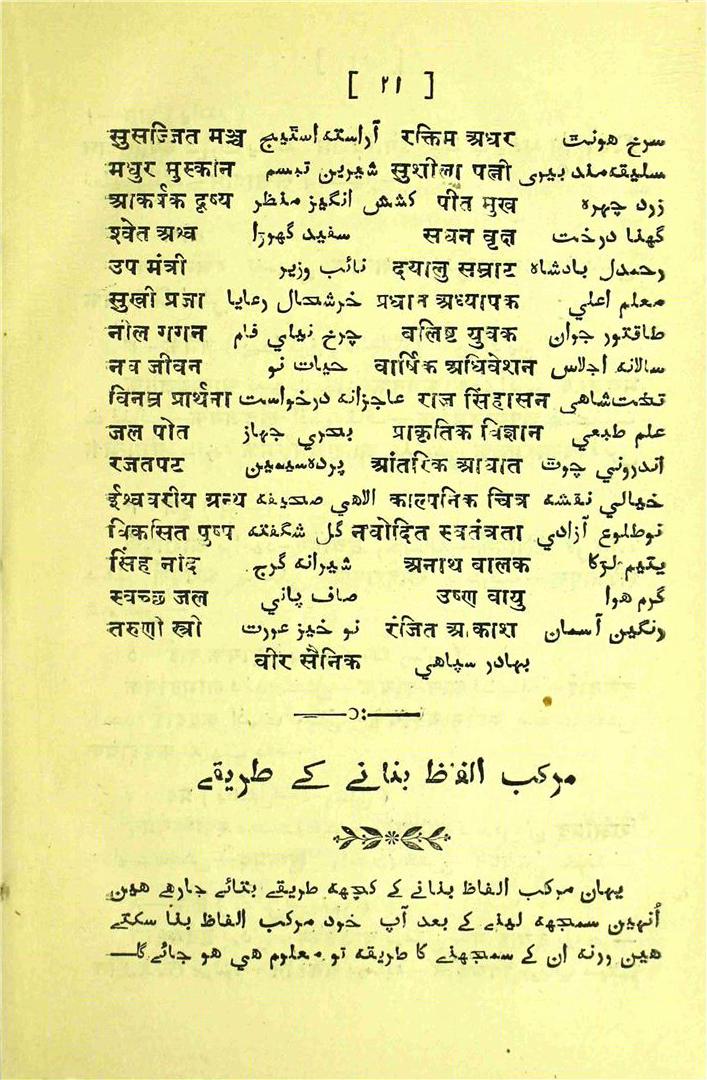 [ ٢١ ]
सुसज्जित मञ्च آراسته استیج रक्तिम अधर سرخ هونت
मधुर मुस्कान شیرین تبسم सुशीला पत्नी سلیقه مند بیری
आकर्षक दृष्य کشش انگیز منظر पीत मुख زرد چهره
श्वेत अश्व سفید گهورا सघन वृक्ष گهنا درخت
उप मंत्री نائب وزیر दयालु सम्राट رحمدل بادشاه
सुखी प्रजा خرشحال رعایا प्रधान अध्यापक معلم اعلی
नील गगन چرخ نیلی فام वलिष्ट युवक طاقتور جوان
नव जीवन حیات نو वार्षिक अधिवेशन سالانه اجلاس
विनम्र प्रार्थना عاجزانه درخواست राज सिंहासन تخت شاهی
जल पोत بحری جهاز प्राकृतिक विज्ञान علم طبیعی
रजतपट پرده سیمین आंतरिक आघात اندرونی چوت
ईश्ववरीय ग्रन्थ الاهی صحیفه काल्पनिक चित्र خیالی نقشه
विकसित पुष्प گل شگفته नवोदित स्वतंत्रता نو طلوع آزادی
सिंह नाद شیرانه گرج अनाथ बालक یتیم لرکا
स्वच्छ जल صاف پانی उष्ण वायु گرم هوا
तरुणी स्त्री نو خیز عورت रंजित अकाश رنگین آسمان
वीर सैनिक بهادر سپاهی
مرکب الفظ بنانے کے طریقے
یهان مرکب الفاظ بنانے کے کچهه طریقے بتائے جارهے هین
اُنهین سمجهه لینے کے بعد آپ خود مرکب الفاظ بنا سکتے
هین ورنه ان کے سمجهنے کا طریقه تو معلوم هی هو جائے گا—